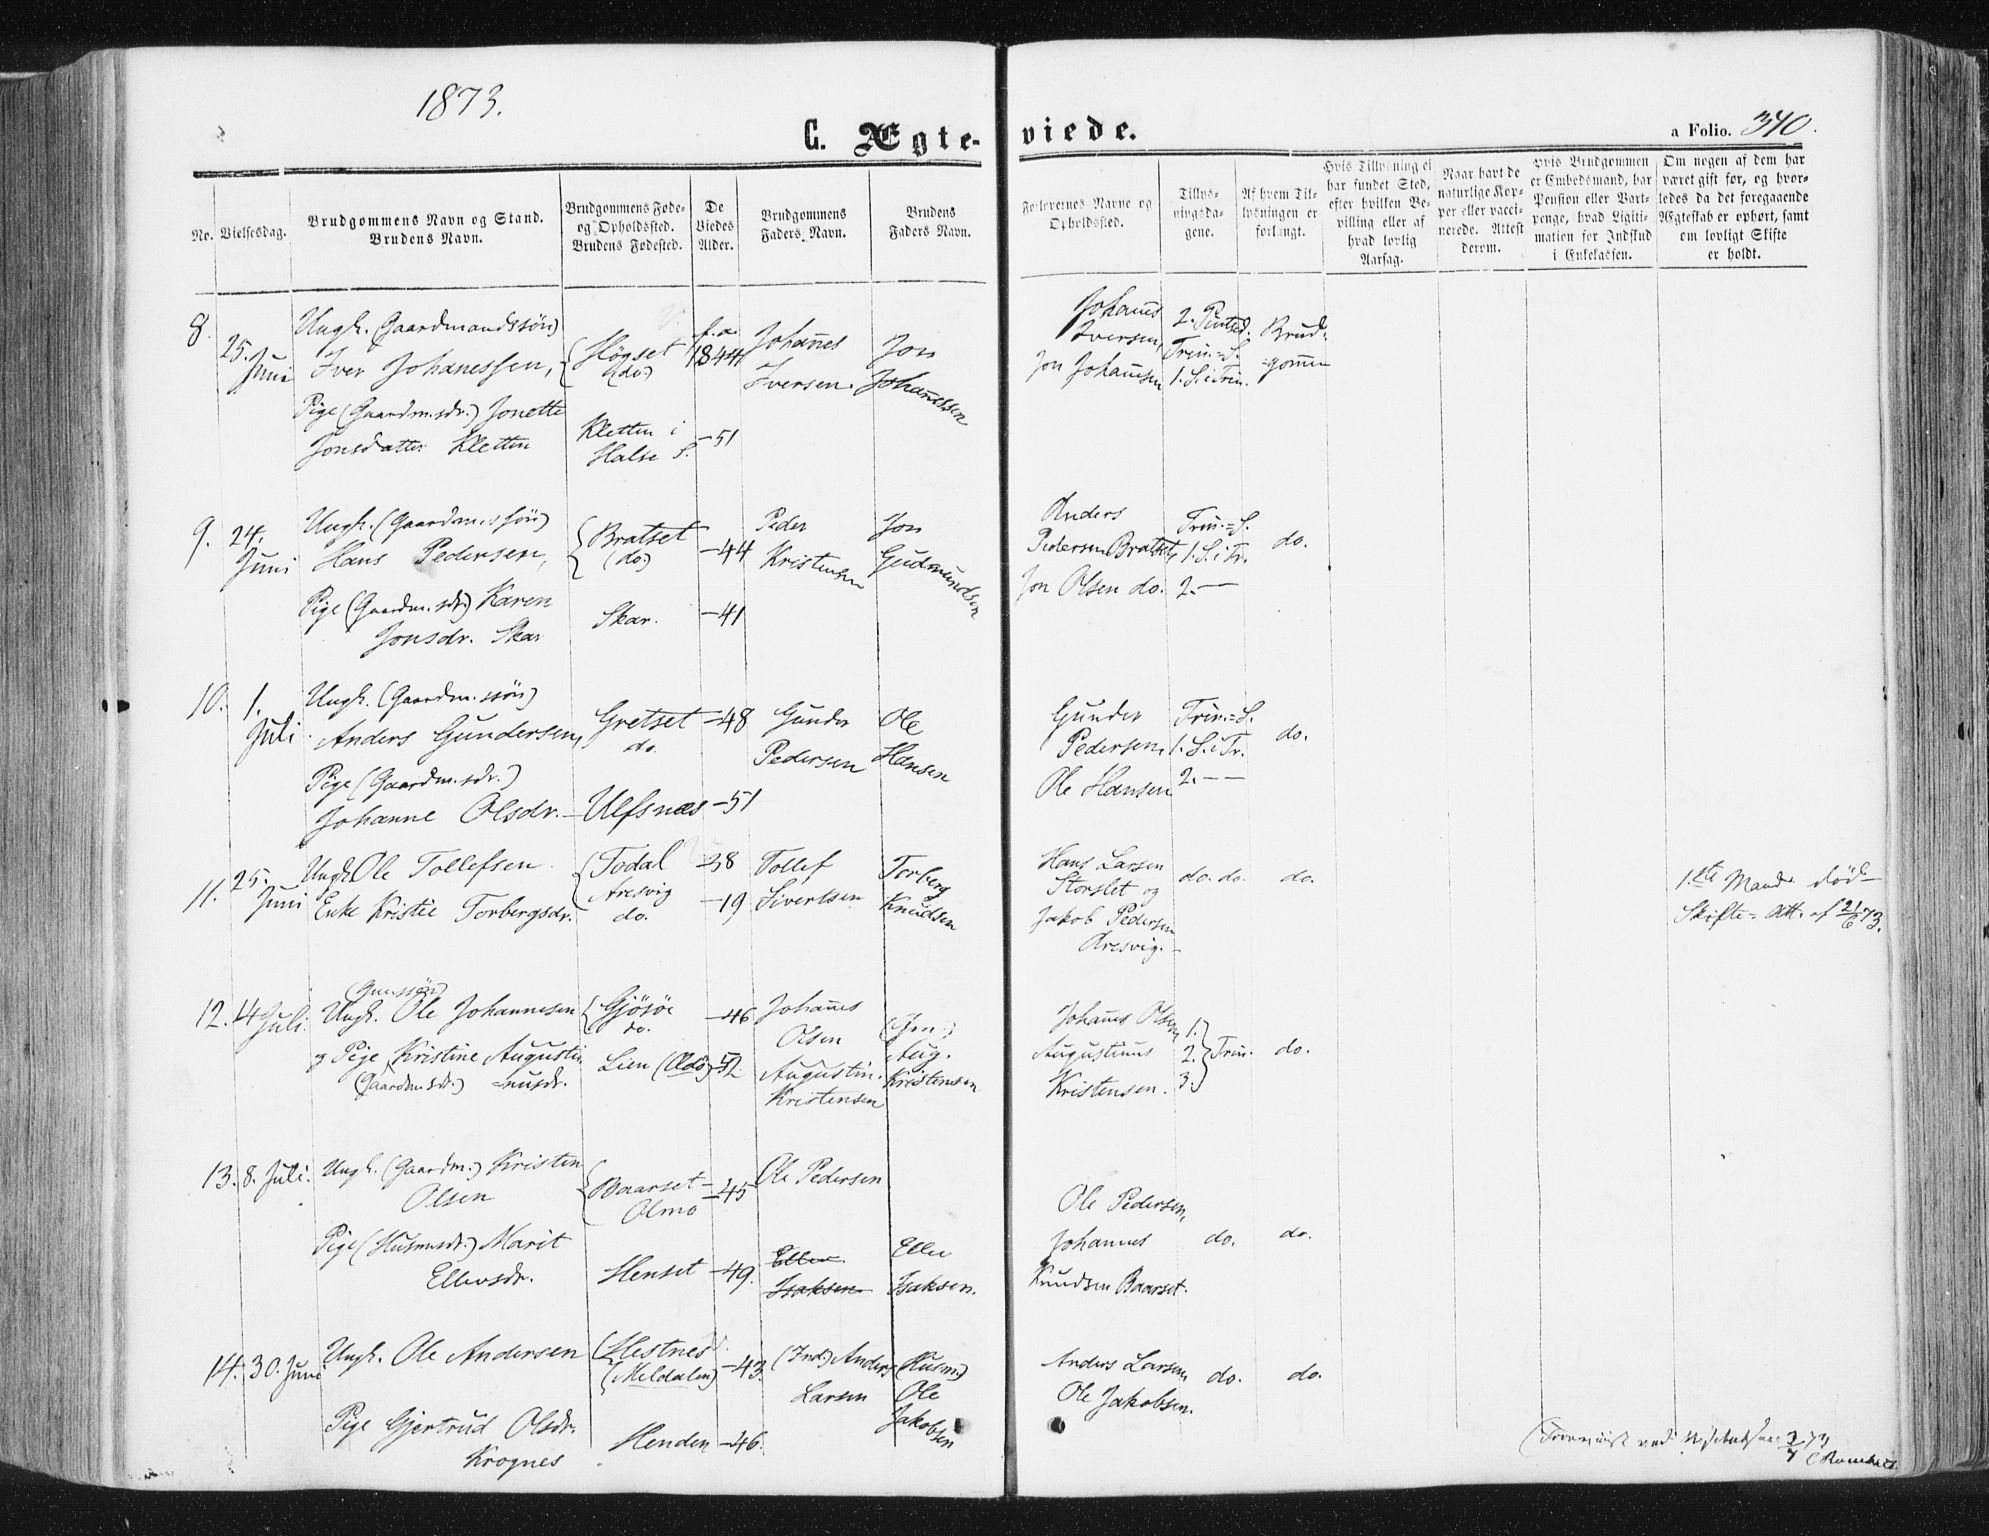 1873.
C. Ægte-viede.
a Folio. 340.
No.
Vielsesdag.
Brudgommens Navn og Stand.
Brudens Navn.
Brudgommens Føde-
og Opholdssted.
Brudens Fødested.
De
Viedes
Alder.
Brudgommens
Faders Navn.
Brudens
Faders Navn.
Forlovernes Navne og
Opholdssted.
Tillys-
ningsda-
gene.
Af hvem Til-
lysningen er
forlangt.
Hvis Tillysning ei
har fundet Sted,
efter hvilken Be-
villing eller af
hvad lovlig
Aarsag.
Naar havt de
naturlige Kop-
per eller vacci-
nerede. Attest
derom.
Hvis Brudgommen
er Embedsmand, har
Pension eller Vart-
penge, hvad Legiti-
mation for Indskud
i Enkekassen.
Om nogen af dem har
været gift før, og hvor-
ledes da det foregaaende
Ægteskab er ophørt, samt
om lovligt Skifte
er holdt.
8.
25.
Juni
Ungk. (Gaardmandssön)
Iver Johanessen,
Pige (Gaardm.sdr.) Jonette
Jonsdatter Kletten
Högset
(do.)
Kletten i
Halse S.
f. a.
1844
-51
Johanes
Iversen.
Jon
Johanessen
Johanes
Iversen,
Jon Johannesen
2. Pintsed.
Trin.=S.
1. S. e Trin.
Brud-
=gomm
9.
24.
Juni
Ungk. (Gaardm.ssön)
Hans Pedersen,
Pige (Gaardm.sdr) Karen
Jonsdr. Skar
Bratset
(do.)
Skar.
-44
-41
Peder
Kristensen
Jon
Gudmundsen
Anders
Pedersen Bratset,
Jon Olsen do.
Trin.=S.
1. S. e Tr.
2. —
do.
10.
1.
Juli
Ungk. (Gaardm.ssön)
Anders Gundersen,
Pige (Gaardm.sdr.)
Johanne Olsdr.
Gretset
do.
Ulfsnæs
-48
-51
Gunder
Pedersen
Ole
Hansen
Gunder
Pedersen,
Ole Hansen
Trin.=S.
1. S. e Tr.
2. — —
do.
11.
25.
Juni
Ungk. Ole Tollefsen
Enke Kristie Torbergsdr.
Todal
Aresvig
do.
-38
-19
Tollef
Sivertsen
Torberg
Knudsen
Hans Larsen
Storslet og
Jakob Pedersen
Aresvig.
do. do.
do.
1.ste Mand död
Skifte=Att. af 21/6 73.
12.
4 Juli.
(Gmssön)
Ungk. Ole Johannesen
og Pige Kristine Augustin
(Gaardm.sdr.) =nusdr.
Gjösöe
do.
Lien (Oldö)
-46
-52
Johanes
Olsen
Augustin.
Kristensen
(Gm.)
Aug.
Kristensen
Johanes Olsen,
Augustinus
Kristensen.
1.
2. Trin.
3.
do.
13.
8. Juli.
Ungk. (Gaardm.) Kristen
Olsen
Pige (Husmsdr.) Marit
Ellevsdr.
Baarset
Olmo
Henset
-45
-49.
Ole Pedersen
Ellev
Isaksen
Ellev
Isaksen.
Ole Pedersen,
Johannes
Knudsen Baarset.
do.
do.
14.
30. Juni
Ungk. Ole Andersen
Pige Gjertrud Olsdr.
Krognes
Hestnes
(Meldalen)
Henden
-43.
-46.
(Ind.) Anders
Larsen
(Husm.)
Ole
Jakobsen
Anders Larsen,
Ole Jakobsen.
do.
do.
3/7 73